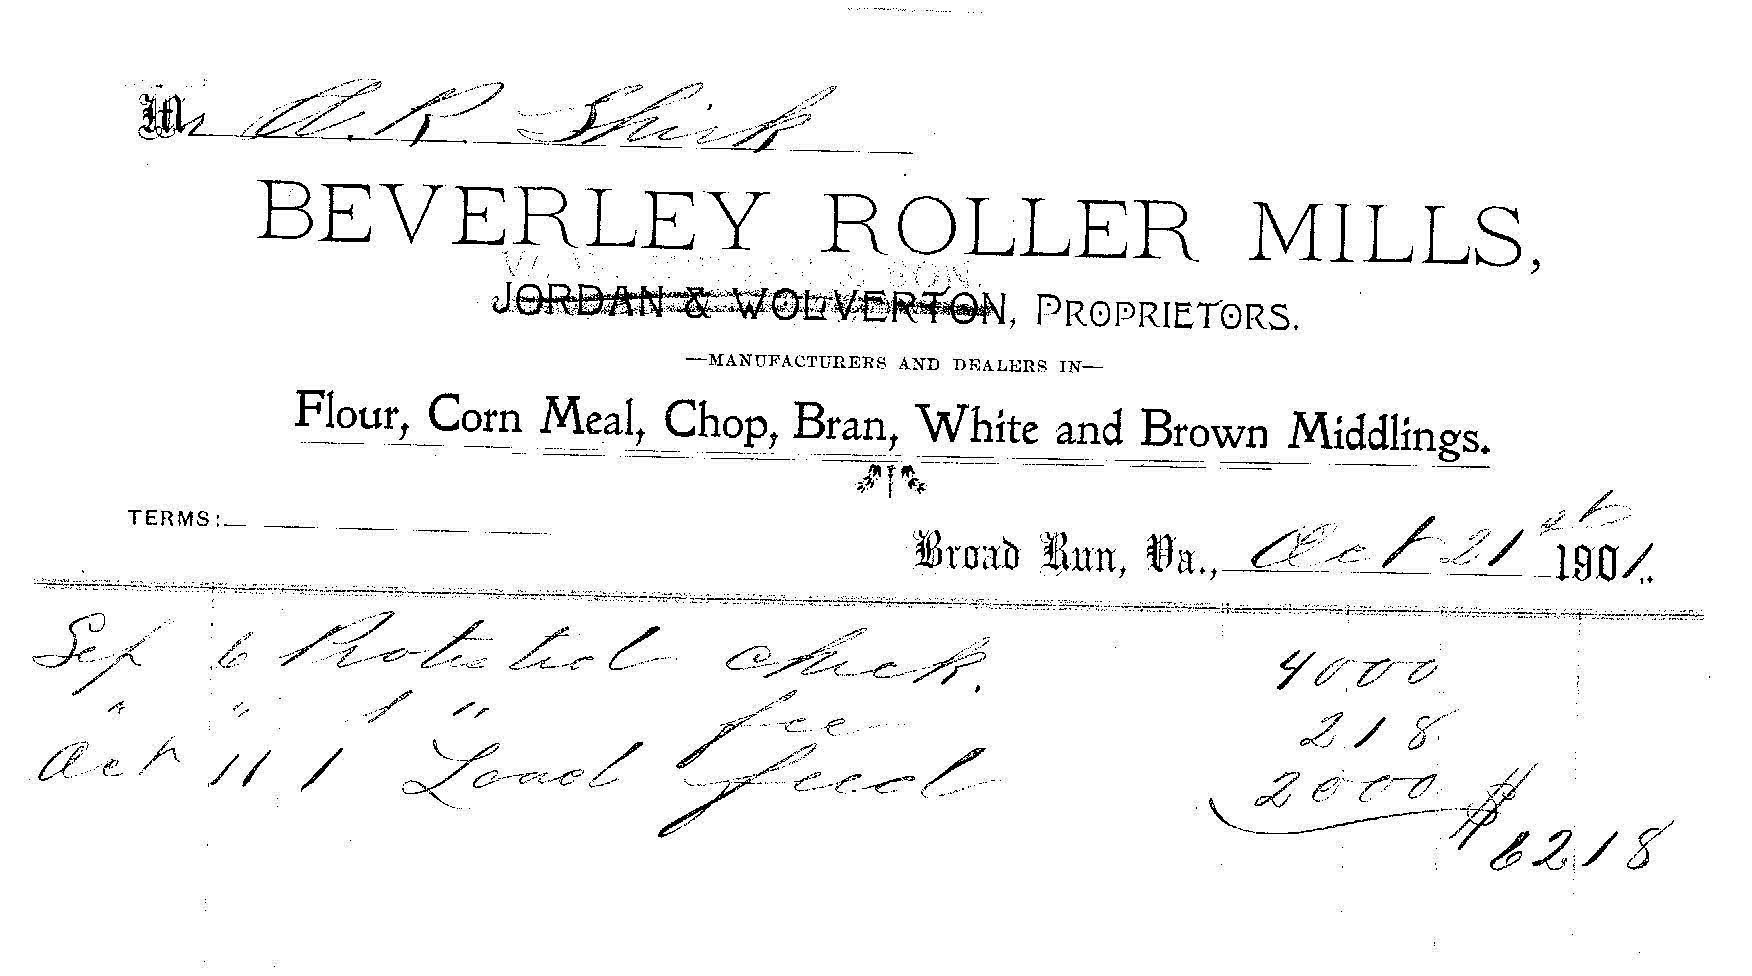 Mr A. R. Shirk
BEVERLEY ROLLER MILLS,
JORDAN & WOLVERTON, PROPRIETORS.
—MANUFACTURERS AND DEALERS IN—
Flour, Corn Meal, Chop, Bran, White and Brown Middlings.
TERMS:
Broad Run, Va., Oct 21st 1901.
Sep 6 Protested check. 4000
" " 1 " fee 218
Oct 11 1 Load feed 2000
$ 6218